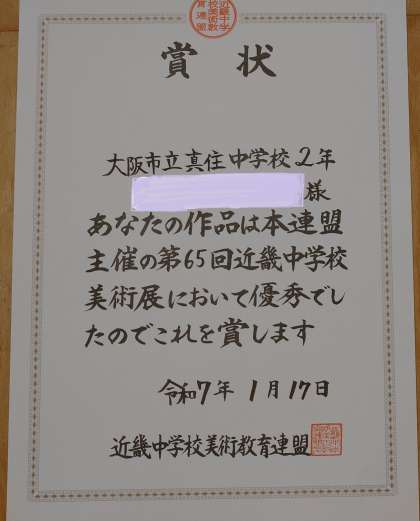 賞状
大阪市立真住中学校2年
様
あなたの作品は本連盟
主催の第65回近畿中学校
美術展において優秀でし
たのでこれを賞します
令和7年 1月17日
近畿中学校美術教育連盟